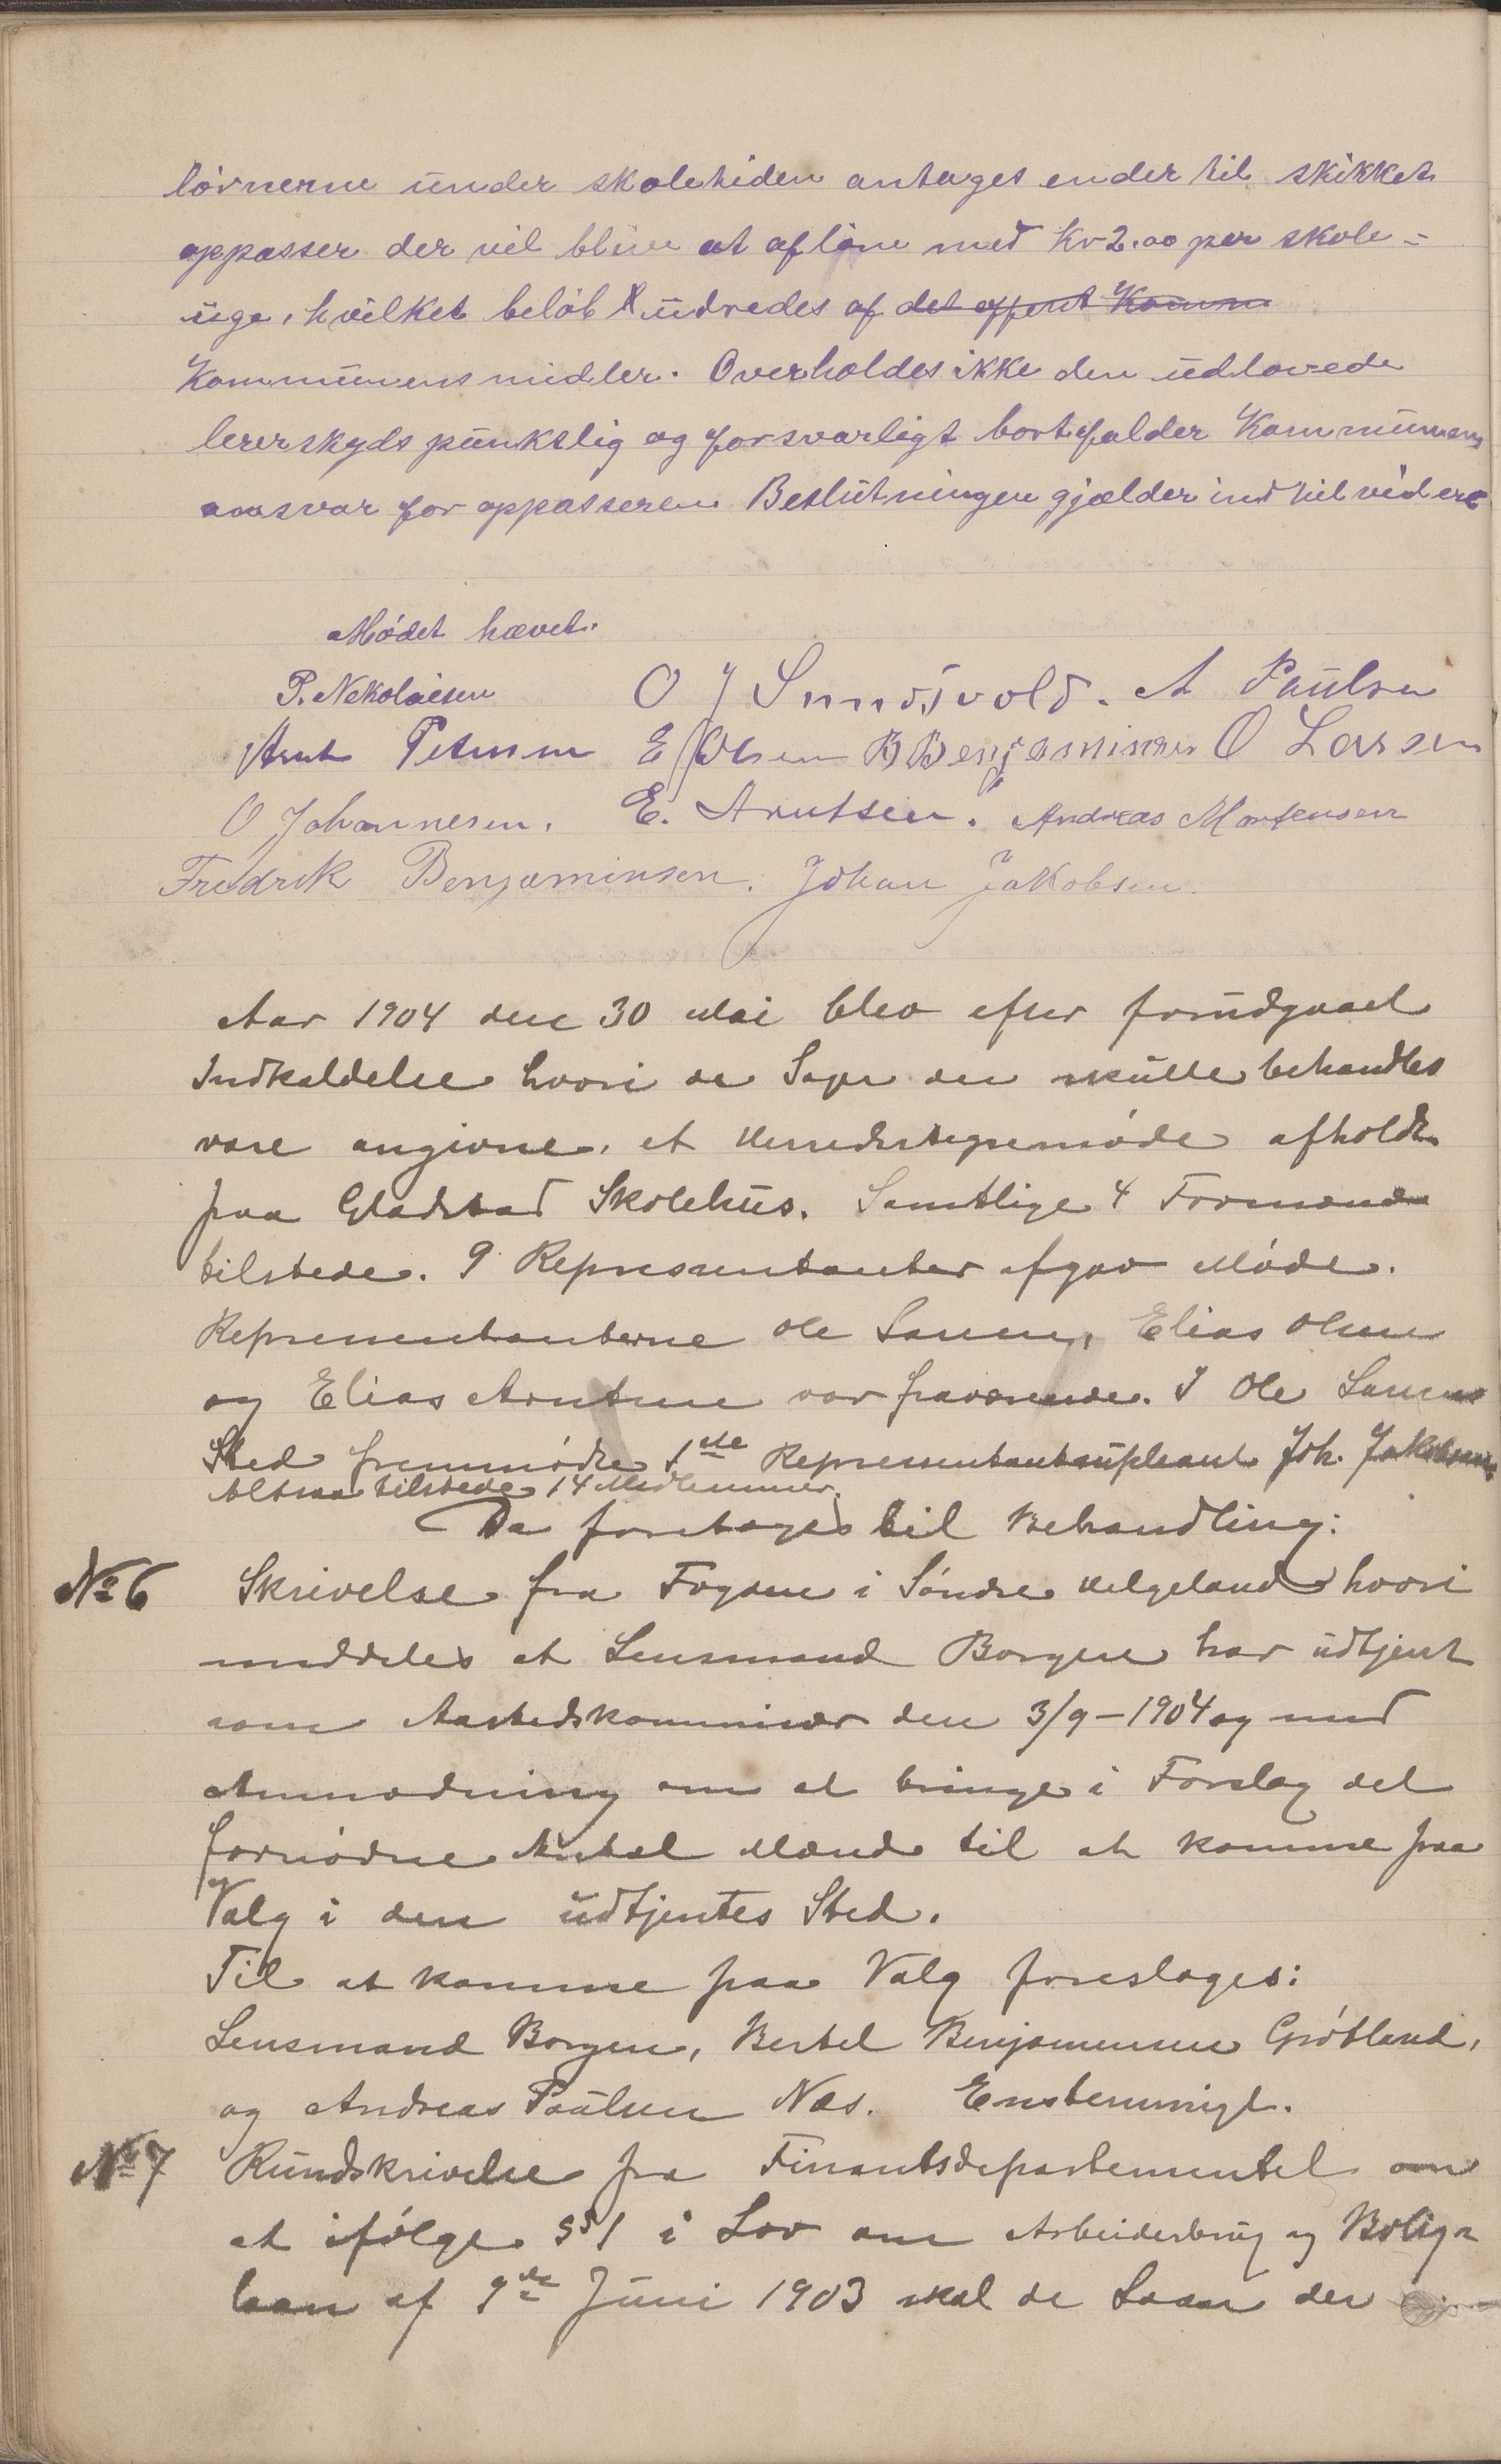 börnene under skoletiden antages en der til skikket
oppasser der vil blive at aflöne med Kr 2.00 per skole-
uge, hvilket belöb udredes af det offent Komm
Kommunens midler. Overholdes ikke den udlovede
lererskyds punktlig og forsvarligt bortfalder Kommunens
ansvar for oppasseren. Beslutningen gjælder indtil videre
Mödet hævet.
P. Nekolaisen O J Sundsvold. A Paulsen
Arnt Petersen E Olsen B Benjaminsen O Larsen
O Johannesen. E. Arntsen. Andreas Mortensen
Fredrik Benjaminsen. Johan Jakobsen.
Aar 1904 den 30 Mai blev efter forudgaaet
Indkaldelse hvori de Sager der skulle behandles
vare angivne, et Herredstyremöde afholdt
paa Gladstad Skolehus. Samtlige 4 Formænd
tilstede. 9 Representanter afgav Möde.
Representanterne Ole Larsen, Elias Olsen
og Elias Arntsen var fraværende. I Ole Larsens
Sted fremmödte 1ste Representantsupleant Joh. Jakobsen.
Altsaa tilstede 14 Medlemmer.
Da foretages til Behandling:
No 6 Skrivelse fra Fogden i Söndre Helgeland hvori
meddeles at Lensmand Borgen har udtjent
som Aastedskommisær den 3/9-1904 og med
Anmodning om at bringe i Forslag det
fornödne Antal Mænd til at komme paa
Valg i den udtjentes Sted.
Til at komme paa Valg foreslages:
Lensmand Borgen, Bertel Benjaminsen Grötland,
og Andreas Paulsen Næs. Enstemmigt.
No 7 Rundskrivelse fra Finantsdepartementet om
at ifölge § 1 i Lov om Arbeiderbrug og Bolig-
laan af 9de Juni 1903 skal de Laan der